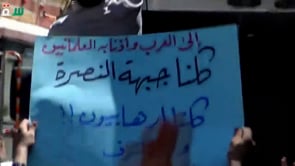 الى الغرب واذنابه العلمانيين
كلنا جبهة النصرة
كلنا ارهابيون !!